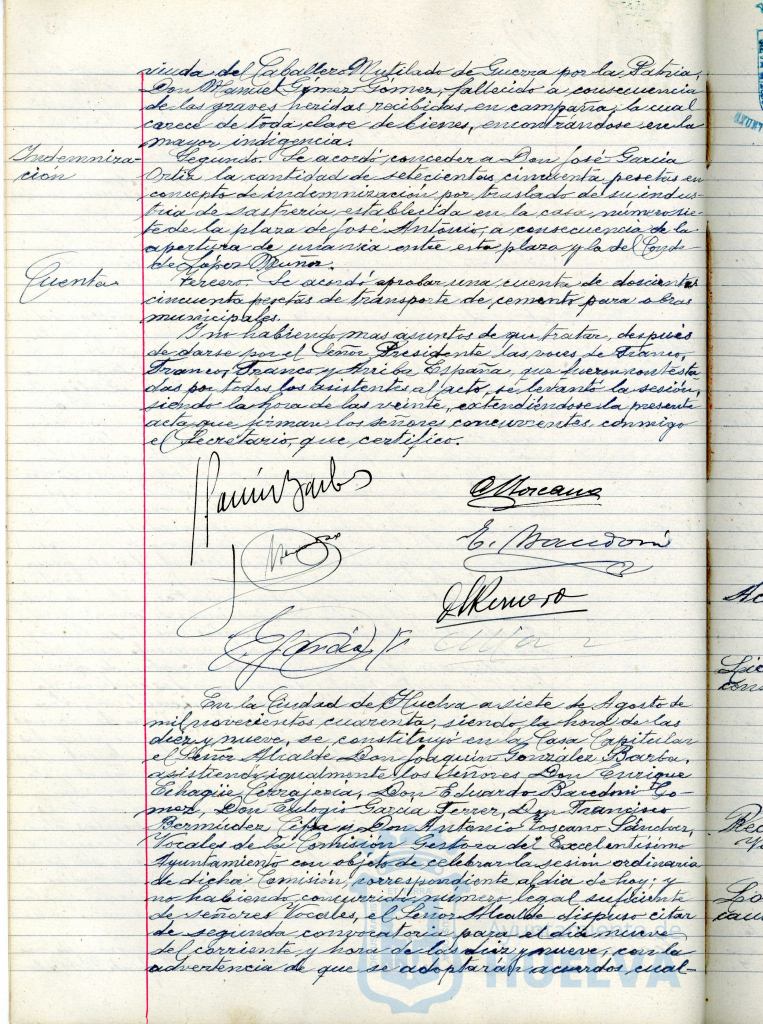 viuda del Caballero Mutilado de Guerra por la Patria,
Don Manuel Gómez Gómez, fallecido a consecuencia
de las graves heridas recibidas en campaña; la cual
carece de toda clase de bienes, encontrándose en la
mayor indigencia.
Indemniza-
ción
Segundo. Se acordó conceder a Don José García
Ortiz la cantidad de setecientas cincuenta pesetas en
concepto de indemnización por traslado de su indus-
tria de sastrería establecida en la casa número sie-
te de la plaza de José Antonio, a consecuencia de la
apertura de una vía entre esta plaza y la del Conde
de López Muñoz.
Cuentas
Tercero. Se acordó aprobar una cuenta de doscientas
cincuenta pesetas de transporte de cemento para obras
municipales.
Y no habiendo mas asuntos de que tratar, después
de darse por el Señor Presidente las voces de Franco,
Franco, Franco y Arriba España, que fueron contesta
das por todos los asistentes al acto, se levantó la sesión,
siendo la hora de las veinte, extendiéndose la presente
acta que firman los señores concurrentes conmigo
el Secretario, que certifico.
E. García
En la Ciudad de Huelva a siete de Agosto de
mil novecientos cuarenta, siendo la hora de las
diez y nueve, se constituyó en la Casa Capitular
el Señor Alcalde Don Joaquín González Barba,
asistiendo igualmente los señores Don Enrique
Echagüe Don Eduardo Go-
mez, Don Eulogio García Ferrer, Don Francisco
Bermúdez y Don Antonio Toscano Sánchez,
Vocales de la Comisión Gestora del Excelentísimo
Ayuntamiento con objeto de celebrar la sesión ordinaria
de dicha Comisión, correspondiente al día de hoy; y
no habiendo concurrido número legal suficiente
de señores Vocales, el Señor Alcalde dispuso citar
de segunda convocatoria para el día nueve
del corriente y hora de las diez y nueve, con la
advertencia de que se adoptarán acuerdos cual-
HUELVA